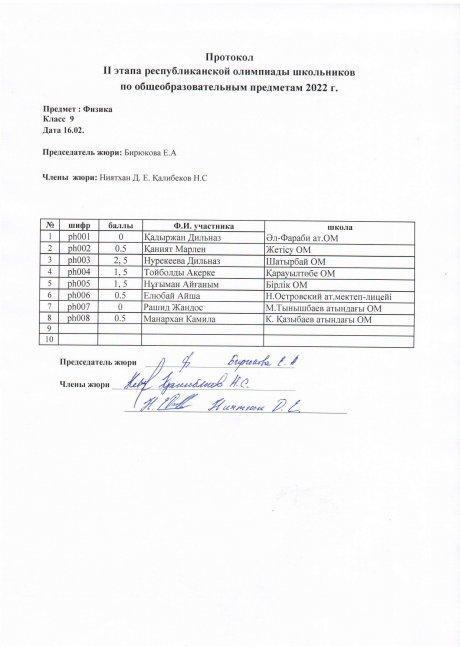 Протокол
II этапа республиканской олимпиады школьников
по общеобразовательным предметам 2022 г.
Предмет : Физика
Класс 9
Дата 16.02.
Председатель жюри: Бирюкова Е.А
Члены жюри: Ниятхан Д. Е. Қалибеков Н.С
№ шифр баллы Ф.И. участника школа
1 ph001 0 Қадыржан Дильназ Әл-Фараби ат.ОМ
2 ph002 0.5 Қаният Марлен Жетісу ОМ
3 ph003 2, 5 Нурекеева Дильназ Шатырбай ОМ
4 ph004 1, 5 Тойболды Акерке Қарауылтөбе ОМ
5 ph005 1, 5 Нұғыман Айғаным Бірлік ОМ
6 ph006 0.5 Елюбай Айша Н.Островский ат.мектеп-лицейі
7 ph007 0 Рашид Жандос М.Тынышбаев атындағы ОМ
8 ph008 0.5 Манархан Камила К. Қазыбаев атындағы ОМ
9
10
Председатель жюри Бирюкова Е. А
Члены жюри Н.С.
Ниятхан Д. Е.